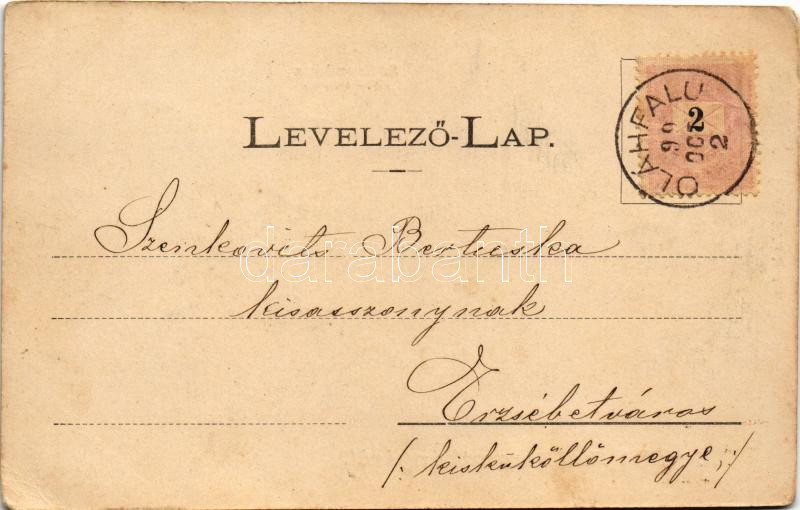 LEVELEZŐ-LAP.
OLÁHFALU
99
OCT
2
2
Szenkovits Bertuska
darabanth
kisasszonynak
Erzsébetváros
/: kisküküllőmegye :/